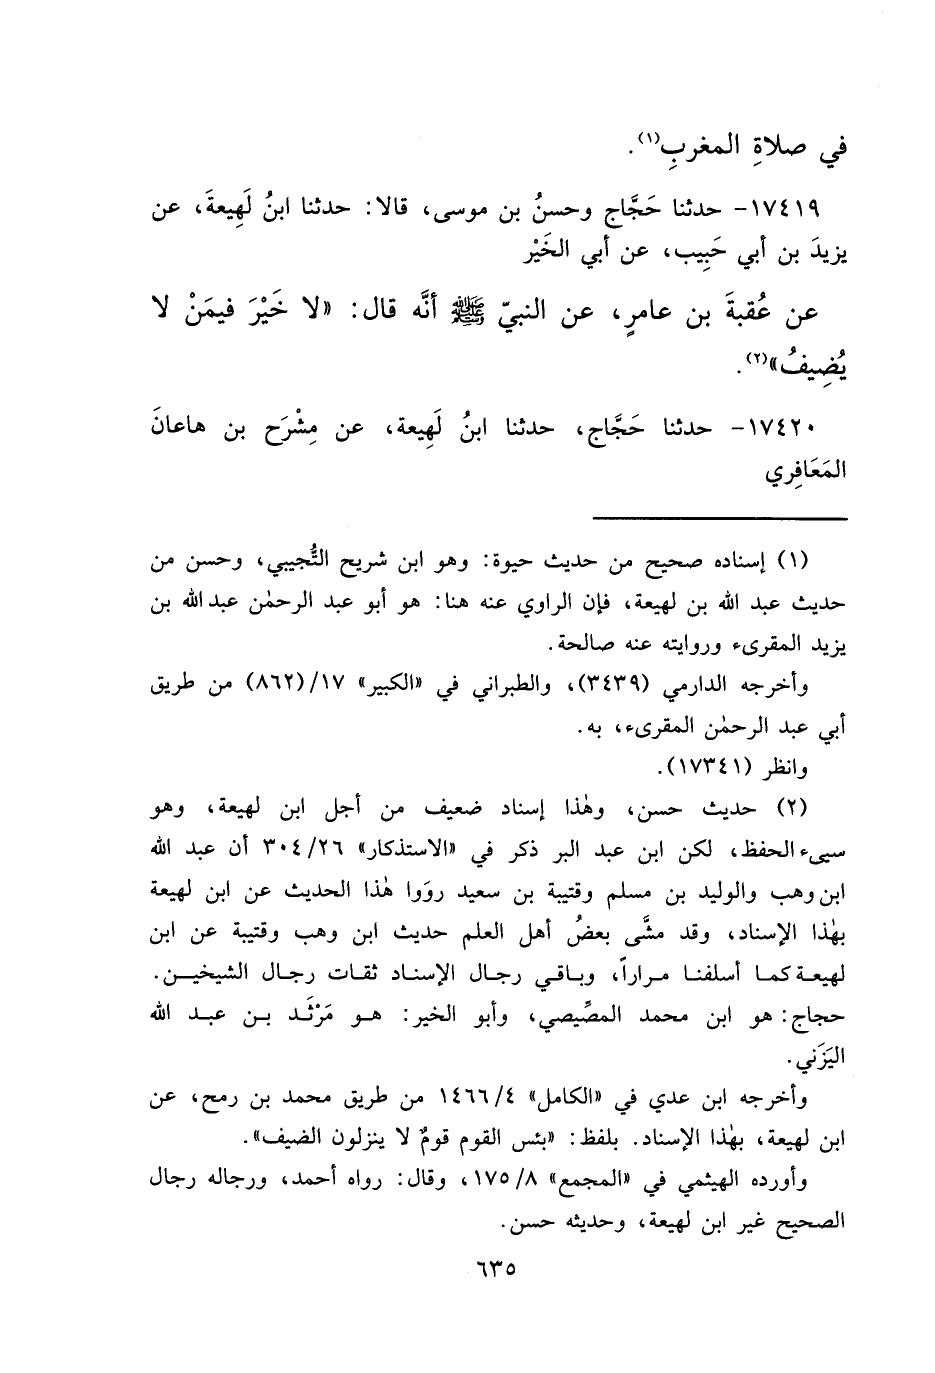 في صلاةِ المغربِ(١).
١٧٤١٩- حدثنا حَجَّاج وحسنُ بن موسى، قالا: حدثنا ابنُ لَهِيعةَ، عن
يزيدَ بن أبي حَبِيب، عن أبي الخَيْر
عن عُقبةَ بن عامرٍ، عن النبيّ ﷺ أنَّه قال: «لا خَيْرَ فيمَنْ لا
يُضِيفُ»(٢).
١٧٤٢٠- حدثنا حَجَّاج، حدثنا ابنُ لَهِيعة، عن مِشْرَح بن هاعانَ
المَعَافِري
(١) إسناده صحيح من حديث حيوة: وهو ابن شريح التُّجيبي، وحسن من
حديث عبد الله بن لهيعة، فإن الراوي عنه هنا: هو أبو عبد الرحمٰن عبد الله بن
يزيد المقرىء وروايته عنه صالحة.
وأخرجه الدارمي (٣٤٣٩)، والطبراني في «الكبير» ١٧/(٨٦٢) من طريق
أبي عبد الرحمٰن المقرىء، به.
وانظر (١٧٣٤١).
(٢) حديث حسن، وهٰذا إسناد ضعيف من أجل ابن لهيعة، وهو
سيىء الحفظ، لكن ابن عبد البر ذكر في «الاستذكار» ٣٠٤/٢٦ أن عبد الله
ابن وهب والوليد بن مسلم وقتيبة بن سعيد روَوا هٰذا الحديث عن ابن لهيعة
بهٰذا الإسناد، وقد مشَّى بعضُ أهل العلم حديث ابن وهب وقتيبة عن ابن
لهيعة كما أسلفنا مراراً، وباقي رجال الإسناد ثقات رجال الشيخين.
حجاج: هو ابن محمد المصِّيصي، وأبو الخير: هو مَرْثَد بن عبد الله
اليَزَني.
وأخرجه ابن عدي في «الكامل» ١٤٦٦/٤ من طريق محمد بن رمح، عن
ابن لهيعة، بهٰذا الإسناد. بلفظ: «بئس القوم قومٌ لا ينزلون الضيف».
وأورده الهيثمي في «المجمع» ١٧٥/٨، وقال: رواه أحمد، ورجاله رجال
الصحيح غير ابن لهيعة، وحديثه حسن.
٦٣٥